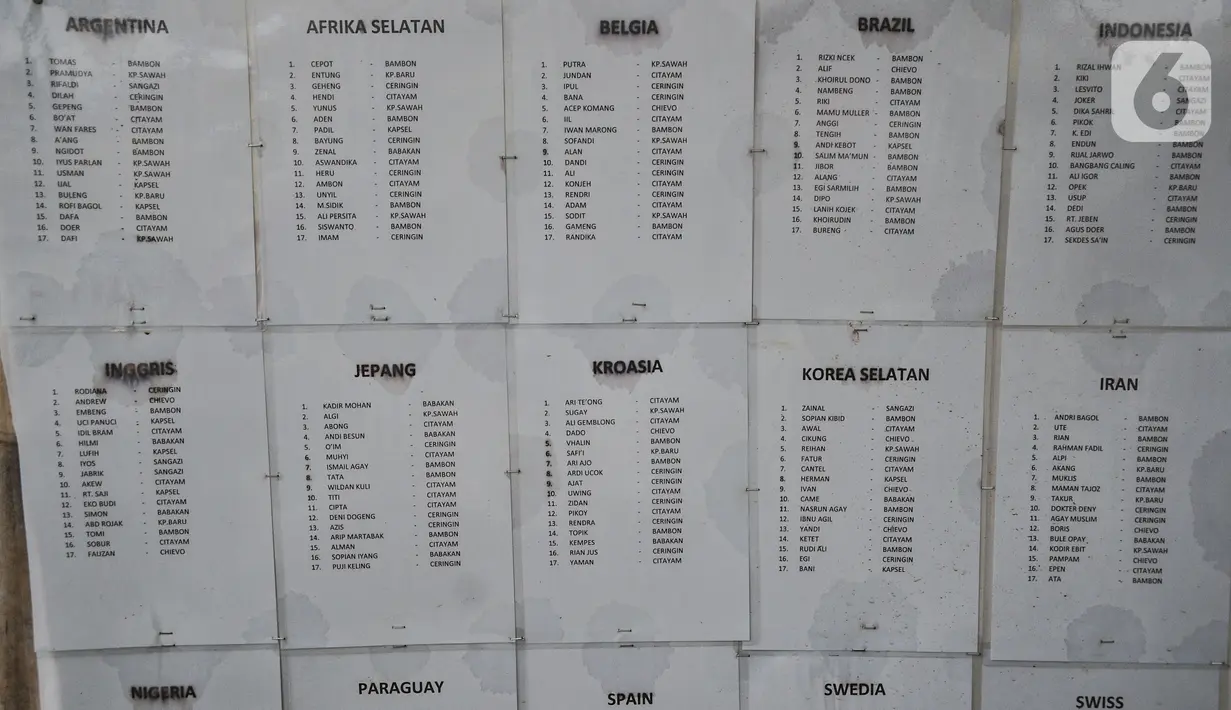 ARGENTINA
1. TOMAS - BAMBON
2. PRAMUDYA - KP.SAWAH
3. RIFALDI - SANGAZI
4. DILAH - CERINGIN
5. GEPENG - BAMBON
6. BO'AT - CITAYAM
7. WAN FARES - CITAYAM
8. A'ANG - BAMBON
9. NGIDOT - BAMBON
10. IYUS PARLAN - KP.SAWAH
11. USMAN - KP.SAWAH
12. IJAL - KAPSEL
13. BULENG - KP.BARU
14. ROFI BAGOL - KAPSEL
15. DAFA - BAMBON
16. DOER - CITAYAM
17. DAFI - KP.SAWAH
AFRIKA SELATAN
1. CEPOT - BAMBON
2. ENTUNG - KP.BARU
3. GEHENG - CERINGIN
4. HENDI - CITAYAM
5. YUNUS - KP.SAWAH
6. ADEN - BAMBON
7. PADIL - KAPSEL
8. BAYUNG - CERINGIN
9. ZENAL - BABAKAN
10. ASWANDIKA - CITAYAM
11. HERU - CERINGIN
12. AMBON - CITAYAM
13. UNYIL - CERINGIN
14. M.SIDIK - BAMBON
15. ALI PERSITA - KP.SAWAH
16. SISWANTO - BAMBON
17. IMAM - CERINGIN
BELGIA
1. PUTRA - KP.SAWAH
2. JUNDAN - CITAYAM
3. IPUL - CERINGIN
4. BANA - CERINGIN
5. ACEP KOMANG - CHIEVO
6. IIL - CITAYAM
7. IWAN MARONG - BAMBON
8. SOFANDI - KP.SAWAH
9. ALAN - CITAYAM
10. DANDI - CERINGIN
11. ALI - CERINGIN
12. KONJEH - CITAYAM
13. RENDRI - CERINGIN
14. ADAM - CITAYAM
15. SODIT - KP.SAWAH
16. GAMENG - BAMBON
17. RANDIKA - CITAYAM
BRAZIL
1. RIZKI NCEK - BAMBON
2. ALIF - CHIEVO
3. KHOIRUL DONO - BAMBON
4. NAMBENG - BAMBON
5. RIKI - CITAYAM
6. MAMU MULLER - BAMBON
7. ANGGI - CERINGIN
8. TENGIH - BAMBON
9. ANDI KEBOT - KAPSEL
10. SALIM MA'MUN - BAMBON
11. JIBOR - BAMBON
12. ALANG - CITAYAM
13. EGI SARMILIH - BAMBON
14. DIPO - KP.SAWAH
15. LANIH KOJEK - CITAYAM
16. KHOIRUDIN - BAMBON
17. BURENG - CITAYAM
INDONESIA
1. RIZAL IHWAN BAMBON
2. KIKI CITAYAM
3. LESVITO CITAYAM
4. JOKER SANGAZI
5. DIKA SAHRI CITAYAM
6. PIKOK CITAYAM
7. K. EDI - BAMBON
8. ENDUN - BAMBON
9. RIJAL JARWO - BAMBON
10. BANGBANG CALING - CITAYAM
11. ALI IGOR - BAMBON
12. OPEK - KP.BARU
13. USUP - CITAYAM
14. DEDI - BAMBON
15. RT. JEBEN - CERINGIN
16. AGUS DOER - BAMBON
17. SEKDES SA'IN - CERINGIN
INGGRIS
1. RODIANA - CERINGIN
2. ANDREW - CHIEVO
3. EMBENG - BAMBON
4. UCI PANUCI - KAPSEL
5. IDIL BRAM - CITAYAM
6. HILMI - BABAKAN
7. LUFIH - KAPSEL
8. IYOS - SANGAZI
9. JABRIK - SANGAZI
10. AKEW - CITAYAM
11. RT. SAJI - KAPSEL
12. EKO BUDI - CITAYAM
13. SIMON - BABAKAN
14. ABD ROJAK - KP.BARU
15. TOMI - BAMBON
16. SOBUR - CITAYAM
17. FAUZAN - CHIEVO
JEPANG
1. KADIR MOHAN - BABAKAN
2. ALGI - KP.SAWAH
3. ABONG - CITAYAM
4. ANDI BESUN - BABAKAN
5. O'IM - CERINGIN
6. MUHYI - CITAYAM
7. ISMAIL AGAY - BAMBON
8. TATA - BAMBON
9. WILDAN KULI - CITAYAM
10. TITI - CITAYAM
11. CIPTA - CITAYAM
12. DENI DOGENG - CERINGIN
13. AZIS - CERINGIN
14. ARIP MARTABAK - BAMBON
15. ALMAN - CITAYAM
16. SOPIAN IYANG - BABAKAN
17. PUJI KELING - CERINGIN
KROASIA
1. ARI TE'ONG - CITAYAM
2. SUGAY - KP.SAWAH
3. ALI GEMBLONG - CITAYAM
4. DADO - CHIEVO
5. VHALIN - BAMBON
6. SAFF'I - KP.BARU
7. ARI AJO - BAMBON
8. ARDI UCOK - CERINGIN
9. AJAT - CERINGIN
10. UWING - CITAYAM
11. ZIDAN - CERINGIN
12. PIKOY - CITAYAM
13. RENDRA - CERINGIN
14. TOPIK - BAMBON
15. KEMPES - BABAKAN
16. RIAN JUS - CERINGIN
17. YAMAN - CITAYAM
KOREA SELATAN
1. ZAINAL - SANGAZI
2. SOPIAN KIBID - BAMBON
3. AWAL - CITAYAM
4. CIKUNG - CHIEVO
5. REIHAN - KP.SAWAH
6. FATUR - CERINGIN
7. CANTEL - CITAYAM
8. HERMAN - KAPSEL
9. IVAN - CHIEVO
10. CAME - BABAKAN
11. NASRUN AGAY - BAMBON
12. IBNU AGIL - CERINGIN
13. YANDI - CHIEVO
14. KETET - CITAYAM
15. RUDI ALI - BAMBON
16. EGI - CERINGIN
17. BANI - KAPSEL
IRAN
1. ANDRI BAGOL - BAMBON
2. UTE - CITAYAM
3. RIAN - BAMBON
4. RAHMAN FADIL - CERINGIN
5. ALPI - BAMBON
6. AKANG - KP.BARU
7. MUKLIS - BAMBON
8. MAMAN TAJOZ - CITAYAM
9. TAKUR - KP.BARU
10. DOKTER DENY - CERINGIN
11. AGAY MUSLIM - CERINGIN
12. BORIS - CHIEVO
13. BULE OPAY - BABAKAN
14. KODIR EBIT - KP.SAWAH
15. PAMPAM - CHIEVO
16. EPEN - CITAYAM
17. ATA - BAMBON
NIGERIA
PARAGUAY
SPAIN
SWEDIA
SWISS
6